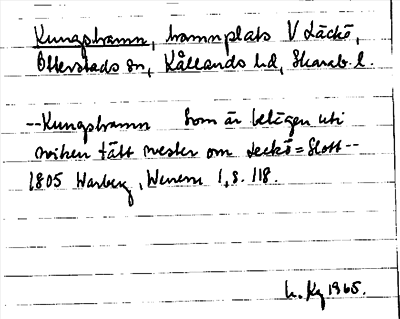 Kungshamn, hamnplats V Läckö,
Otterstads sn, Kållands hd, Skarab. l.
--Kungshamn som är belägen uti
wiken tätt wester om Leckö=Slott--
1805 Warberg, Wenern 1, s. 118.
Kg 1965.